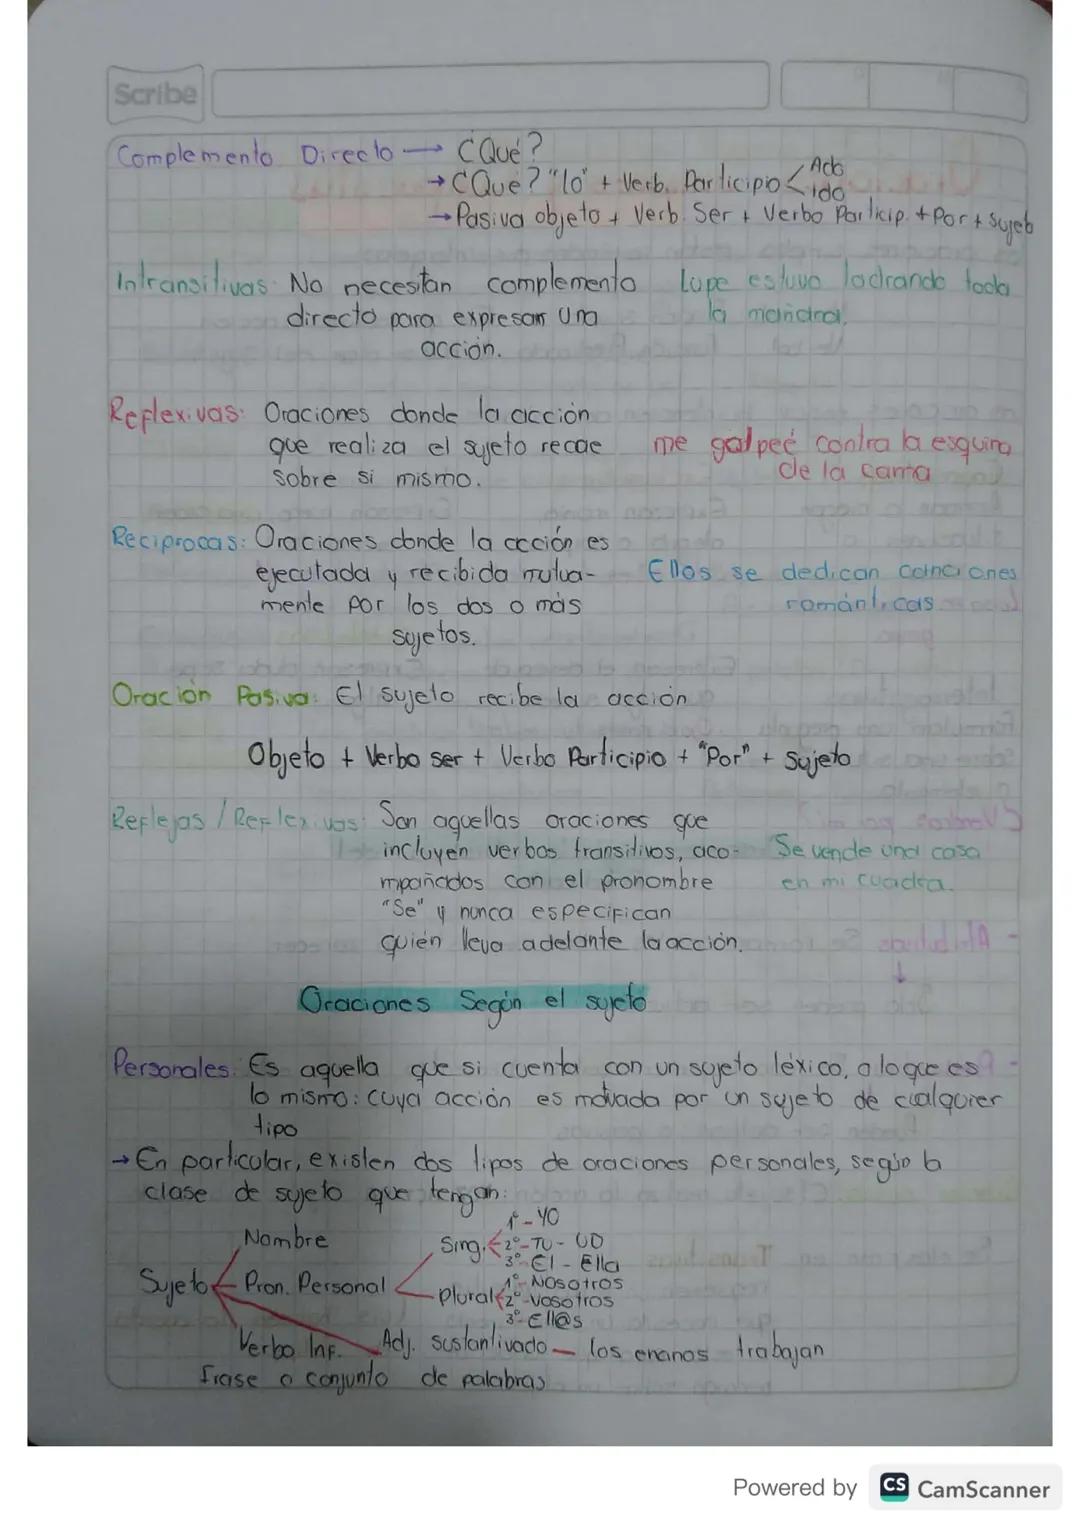 Scribe
Complemento Directo → ¿Qué?
→ ¿Qué? "lo" + Verb. Participio < Ado
ido
→ Pasiva objeto + Verb. Ser + Verbo Particip. + Por + sujeto
Intransitivas: No necesitan complemento Lupe estuvo ladrando toda
directo para expresar una la mañana.
acción.
Reflexivas: Oraciones donde la acción
que realiza el sujeto recae me golpeé contra la esquina
sobre si mismo. de la cama
Reciprocas: Oraciones donde la acción es
ejecutada y recibida mutua- Ellos se dedican canciones
mente por los dos o más románticas
sujetos.
Oración Pasiva: El sujeto recibe la acción
Objeto + Verbo ser + Verbo Participio + "Por" + Sujeto
Reflejas / Reflexivas: Son aquellas oraciones que
incluyen verbos transitivos, aco- Se vende una casa
mpañados con el pronombre en mi cuadra.
"Se" y nunca especifican
quién lleva adelante la acción.
Oraciones Según el sujeto
Personales: Es aquella que si cuenta con un sujeto léxico, o lo que es
lo mismo: cuya acción es motivada por un sujeto de cualquier
tipo
→ En particular, existen dos tipos de oraciones personales, según la
clase de sujeto que tengan:
1°- YO
Nombre Sing. 2°- TU - UD
3°- El - Ella
Sujeto Pron. Personal 1°- Nosotros
Plural 2°- Vosotros
3°- Ell@s
Verbo Inf. Adj. sustantivado — los enanos trabajan
frase o conjunto de palabras
Powered by CS CamScanner